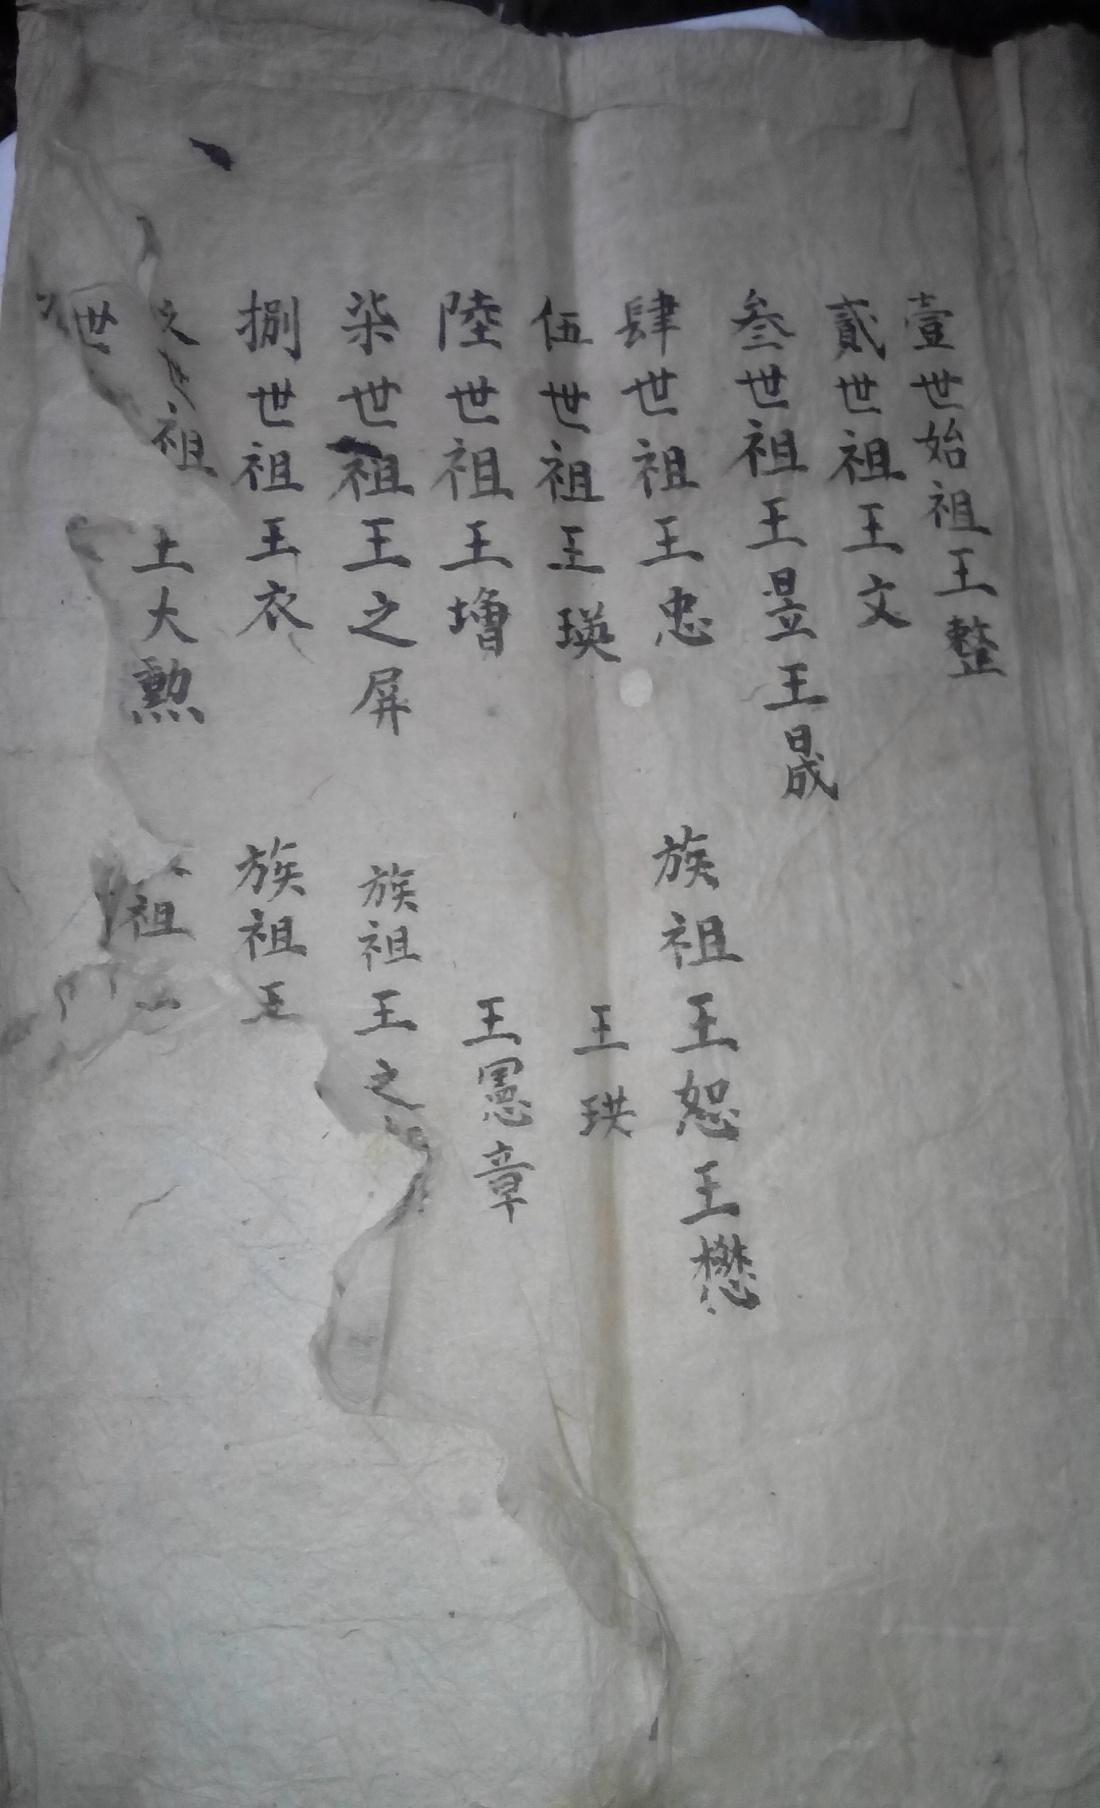 壹世始祖王整
貳世祖王文
叄世祖王昱王晟
肆世祖王忠
族祖王恕王懋
伍世祖王瑛
王珙
陸世祖王增
王憲章
柒世祖王之屏
族祖王之
捌世祖王衣
族祖王
祖王大勲
祖
世